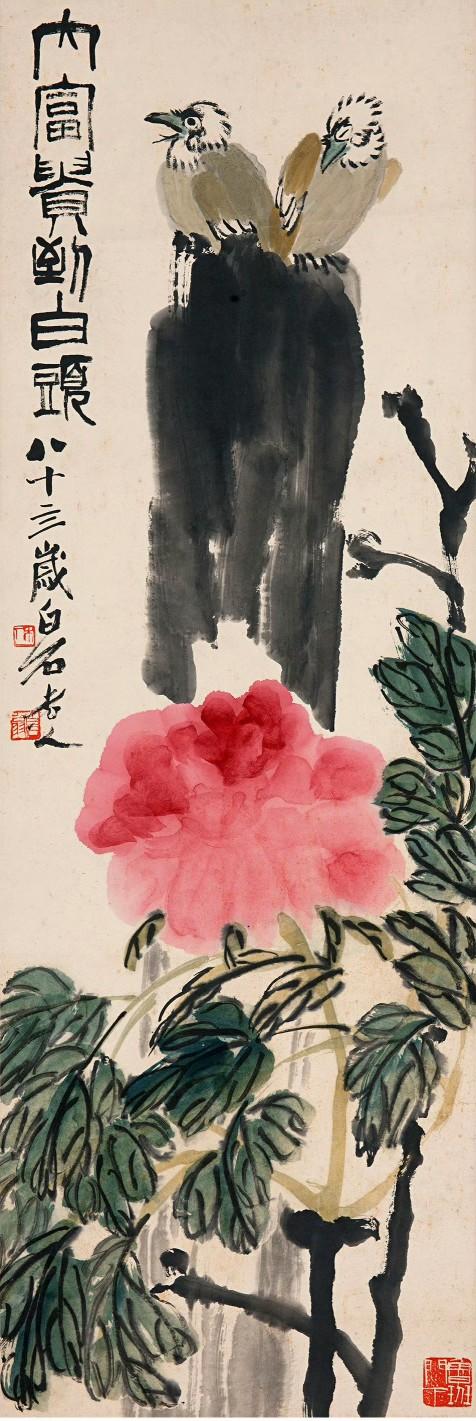 大富貴到白頭
八十三歲白石老人